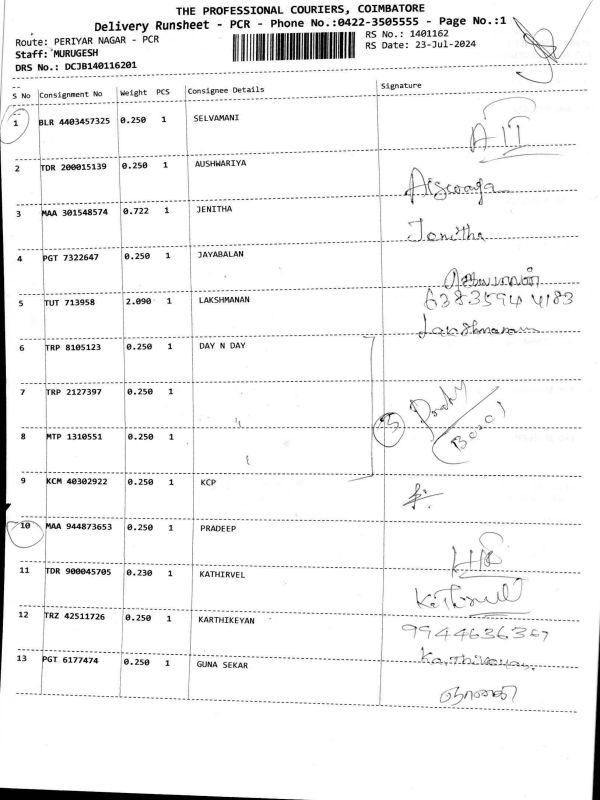 THE PROFESSIONAL COURIERS, COIMBATORE
Delivery Runsheet - PCR - Phone No.:0422-3505555 - Page No.:1
Route: PERIYAR NAGAR - PCR RS No.: 1401162
Staff: MURUGESH RS Date: 23-Jul-2024
DRS No.: DCJB140116201
S No Consignment No Weight PCS Consignee Details Signature
1 BLR 4403457325 0.250 1 SELVAMANI
2 TDR 200015139 0.250 1 AUSHWARIYA
3 MAA 301548574 0.722 1 JENITHA
Jenitha
4 PGT 7322647 0.250 1 JAYABALAN
5 TUT 713958 2.090 1 LAKSHMANAN
Lakshmanan
6 TRP 8105123 0.250 1 DAY N DAY
7 TRP 2127397 0.250 1
8 MTP 1310551 0.250 1
3
9 KCM 40302922 0.250 1 KCP
10 MAA 944873653 0.250 1 PRADEEP
11 TDR 900045705 0.230 1 KATHIRVEL
12 TRZ 42511726 0.250 1 KARTHIKEYAN
9944636367
Karthikeyan
13 PGT 6177474 0.250 1 GUNA SEKAR